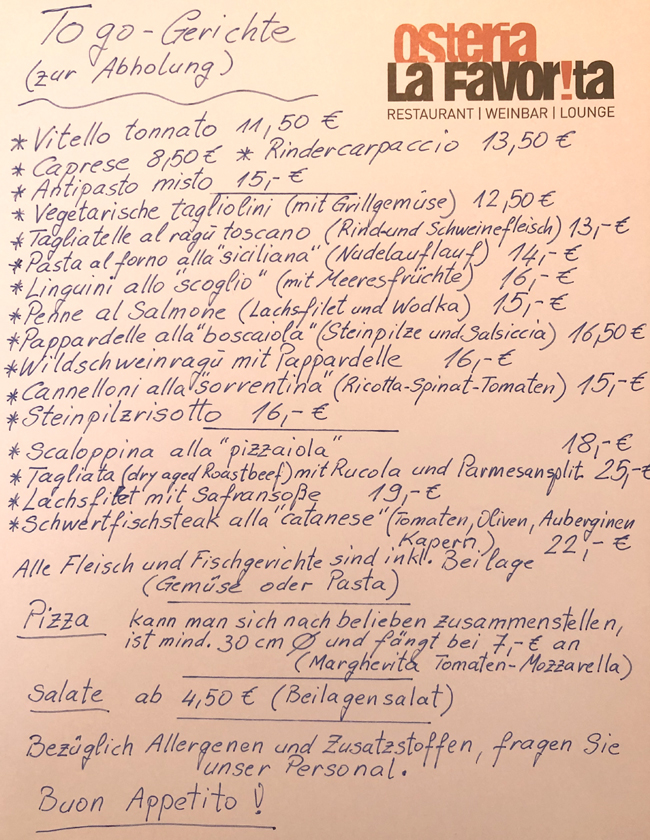 To go-Gerichte
(zur Abholung)
osteria
LA FAVOR!TA
RESTAURANT | WEINBAR | LOUNGE
* Vitello tonnato 11,50 €
* Caprese 8,50 € * Rindercarpaccio 13,50 €
* Antipasto misto 15,- €
* Vegetarische tagliolini (mit Grillgemüse) 12,50 €
* Tagliatelle al ragū toscano (Rind und Schweinefleisch) 13,- €
* Pasta al forno alla "siciliana" (Nudelauflauf) 14,- €
* Linguini allo "scoglio" (mit Meeresfrüchte) 16,- €
* Penne al Salmone (Lachsfilet und Wodka) 15,- €
* Pappardelle alla "boscaiola" (Steinpilze und Salsiccia) 16,50 €
* Wildschweinragū mit Pappardelle 16,- €
* Cannelloni alla "sorrentina" (Ricotta-Spinat-Tomaten) 15,- €
* Steinpilzrisotto 16,- €
* Scaloppina alla "pizzaiola" 18,- €
* Tagliata (dry aged Roastbeef) mit Rucola und Parmesansplit. 25,- €
* Lachsfilet mit Safransoße 19,- €
* Schwertfischsteak alla "catanese" (Tomaten, Oliven, Auberginen
Kapern.) 22,- €
Alle Fleisch und Fischgerichte sind inkl. Beilage
(Gemüse oder Pasta)
Pizza kann man sich nach belieben zusammenstellen,
ist mind. 30 cm Ø und fängt bei 7,- € an
(Margherita Tomaten-Mozzarella)
Salate ab 4,50 € (Beilagensalat)
Bezüglich Allergenen und Zusatzstoffen, fragen Sie
unser Personal.
Buon Appetito !